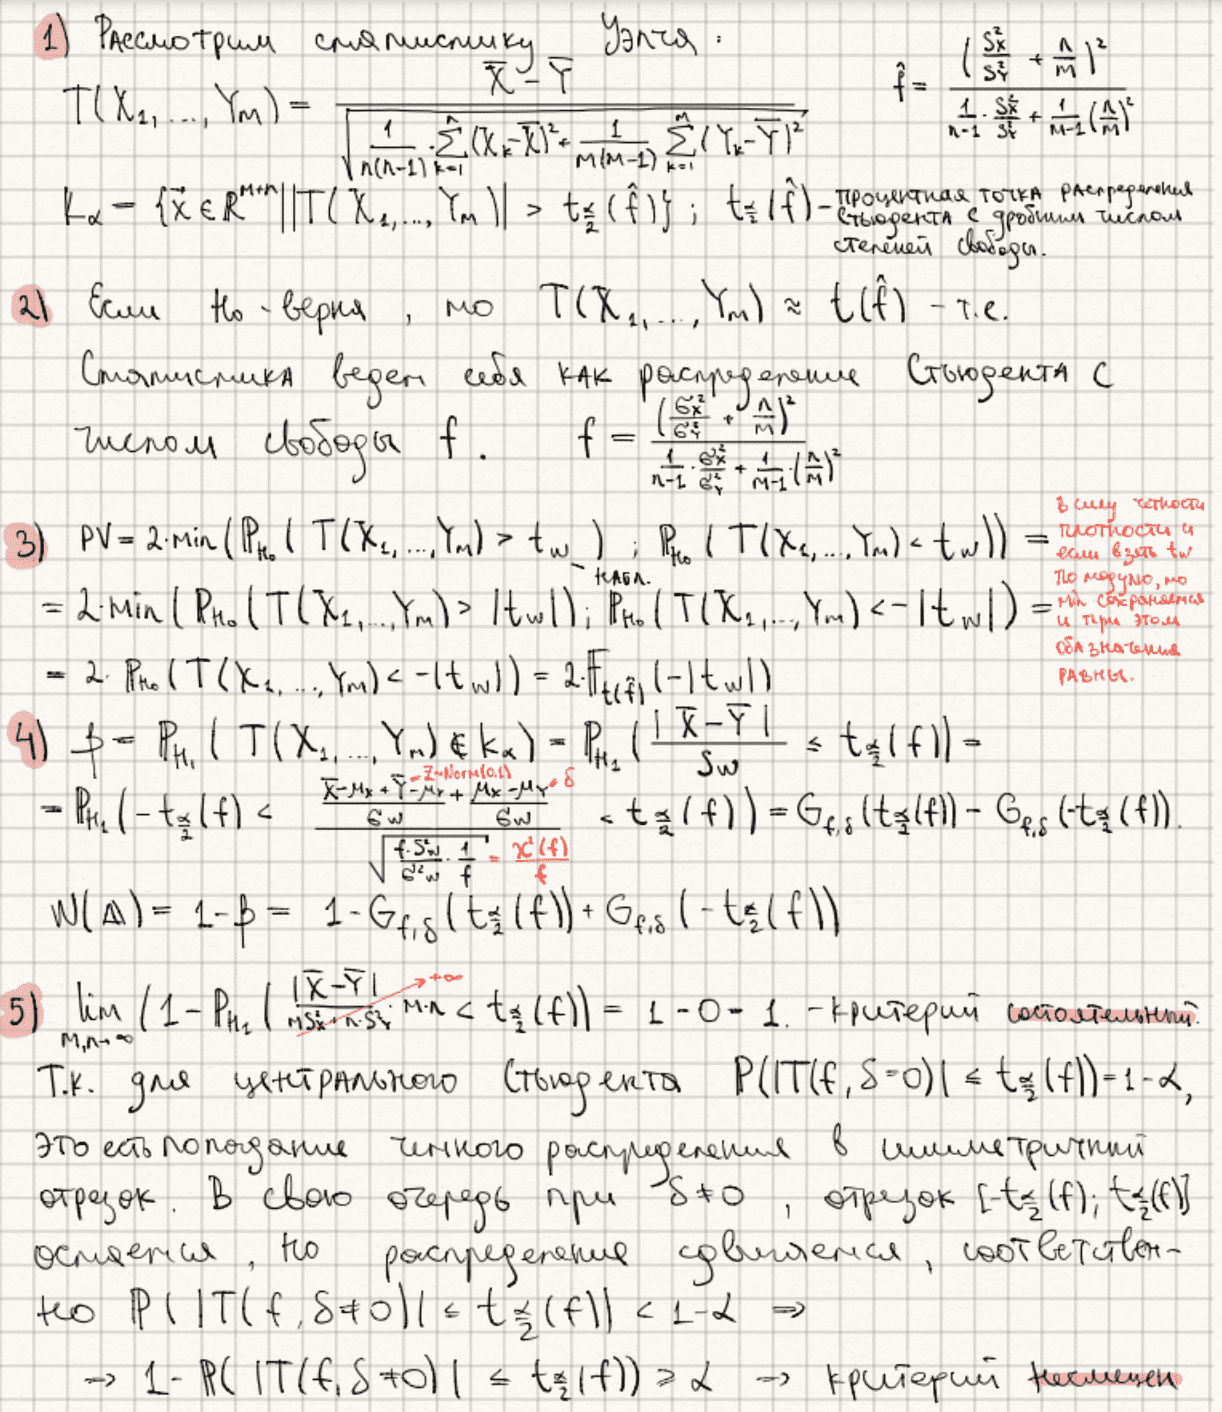 1) Рассмотрим статистику Уэлча:
T(X₁, ..., Yₘ) = (X̄ − Ȳ) / √(1/(n(n−1)) · Σₖ₌₁ⁿ (Xₖ−X̄)² + 1/(m(m−1)) Σₖ₌₁ᵐ (Yₖ−Ȳ)²)
f̂ = (S²x/S²y + n/m)² / (1/(n−1) · S²x/S²y + 1/(m−1) (n/m)²)
K_α = {x⃗ ∈ ℝ^{m+n} | |T(X₁, ..., Yₘ)| > t_{α/2}(f̂)}; t_{α/2}(f̂) – процентная точка распределения
Стьюдента с дробным числом
степеней свободы.
2) Если H₀ - верна, то T(X₁, ..., Yₘ) ≈ t(f̂) – т.е.
Статистика ведет себя как распределение Стьюдента с
числом свободы f. f = (σ²x/σ²y + n/m)² / (1/(n−1) · σ²x/σ²y + 1/(m−1) · (n/m)²)
3) PV = 2·min(ℙ_{H₀}(T(X₁, ..., Yₘ) > t_w); ℙ_{H₀}(T(X₁, ..., Yₘ) < t_w)) =
набл.
= 2·min(ℙ_{H₀}(T(X₁, ..., Yₘ) > |t_w|); ℙ_{H₀}(T(X₁, ..., Yₘ) < −|t_w|) =
= 2·ℙ_{H₀}(T(X₁, ..., Yₘ) < −|t_w|) = 2·F_{t(f̂)}(−|t_w|)
В силу четности
плотности и
если взять t_w
по модулю, то
min сохраняется
и при этом
обозначения
равны.
4) β = ℙ_{H₁}(T(X₁, ..., Yₘ) ∉ K_α) = ℙ_{H₁}(|X̄ − Ȳ| / S_w ≤ t_{α/2}(f)) =
= ℙ_{H₁}(−t_{α/2}(f) < ((X̄−μx + Ȳ−μy)/σ_w + (μx−μy)/σ_w) / √(f·S²w/σ²w · 1/f) < t_{α/2}(f)) = G_{f,δ}(t_{α/2}(f)) − G_{f,δ}(−t_{α/2}(f)).
= Z~Norm(0,1)
= δ
= χ²(f)/f
W(Δ) = 1−β = 1−G_{f,δ}(t_{α/2}(f)) + G_{f,δ}(−t_{α/2}(f))
5) lim_{m,n→∞} (1 − P_{H₁}(|X̄−Ȳ| / (mS²x + n·S²y) · m·n < t_{α/2}(f)) = 1 − 0 = 1. – критерий состоятельный.
+∞
Т.к. для центрального Стьюдента P(|T(f, δ=0)| ≤ t_{α/2}(f)) = 1−α,
это есть попадание четного распределения в симметричный
отрезок. В свою очередь при δ≠0, отрезок [−t_{α/2}(f); t_{α/2}(f)]
остается, но распределение сдвигается, соответствен-
но ℙ(|T(f, δ≠0)| ≤ t_{α/2}(f)) < 1−α ⇒
→ 1−ℙ(|T(f, δ≠0)| ≤ t_{α/2}(f)) ≥ α → критерий несмещен